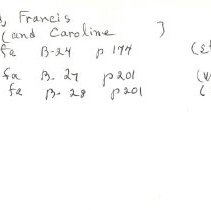 Francis
(and Caroline )
fa B-24 p 177
fa B- 27 p 201
fa B- 28 p 201 (